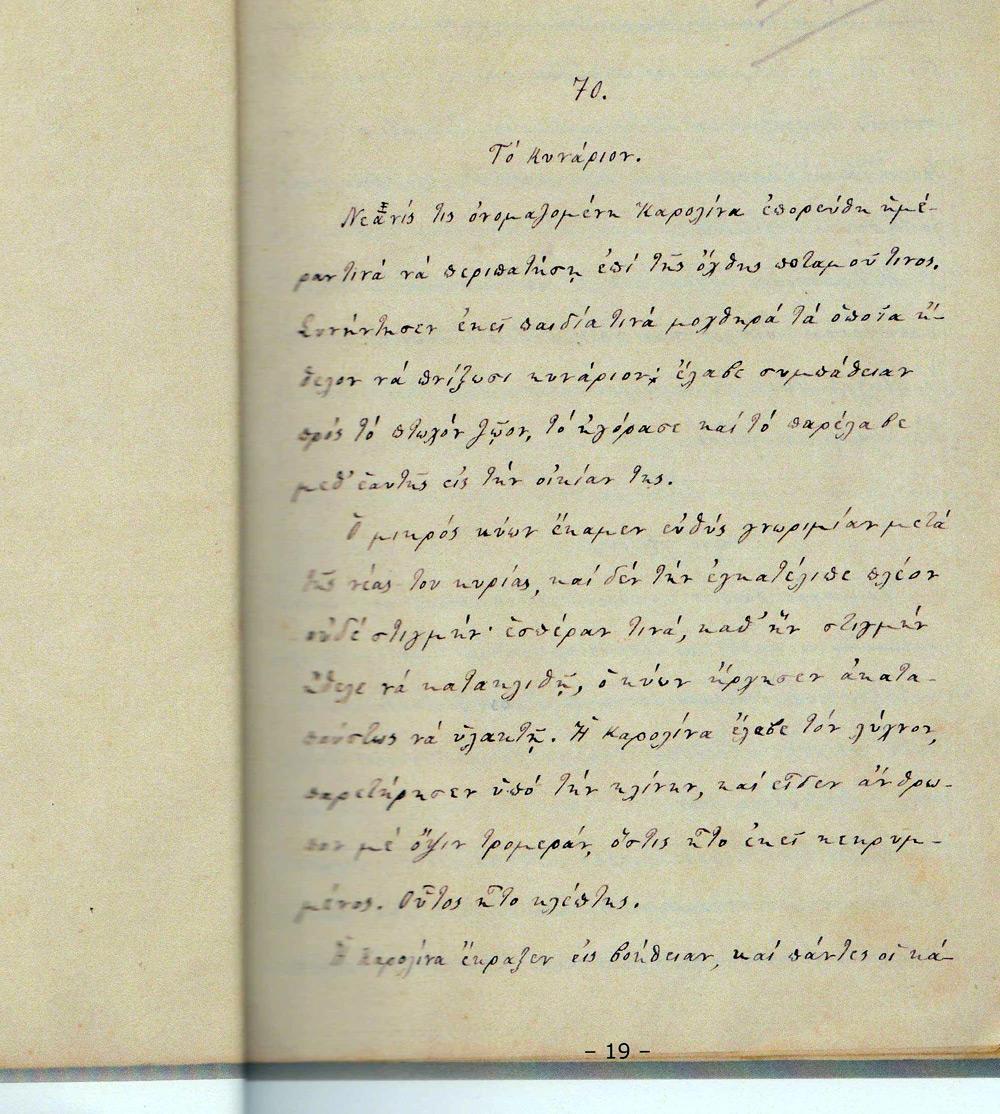 70.
Τό Κυνάριον.
Νεᾶνίς τις ὀνομαζομένη Καρολίνα ἐπορεύθη ἡμέ-
ραν τινά νά περιπατήσῃ ἐπί τῆς ὄχθης ποταμοῦ τινος.
Συνήντησεν ἐκεῖ παιδία τινά μοχθηρά τά ὁποῖα ἤ-
θελον νά πνίξωσι κυνάριον; ἔλαβε συμπάθειαν
πρός τό πτωχόν ζῷον, τό ἠγόρασε καί τό παρέλαβε
μεθ' ἑαυτῆς εἰς τήν οἰκίαν της.
Ὁ μικρός κύων ἔκαμεν εὐθύς γνωριμίαν μετά
τῆς νέας του κυρίας, καί δέν τήν ἐγκατέλιπε πλέον
οὐδέ στιγμήν· ἑσπέραν τινά, καθ' ἥν στιγμήν
ἤθελε νά κατακλιθῇ, ὁ κύων ἤρχησεν ἀκατα-
παύστως νά ὑλακτῇ. Ἡ Καρολίνα ἔλαβε τόν λύχνον,
παρετήρησεν ὑπό τήν κλίνην, καί εἶδεν ἄνθρω-
πον μέ ὄψιν τρομεράν, ὅστις ἦτο ἐκεῖ κεκρυμ-
μένος. Οὗτος ἦτο κλέπτης.
Ἡ Καρολίνα ἔκραξεν εἰς βοήθειαν, καί πάντες οἱ κά-
– 19 –